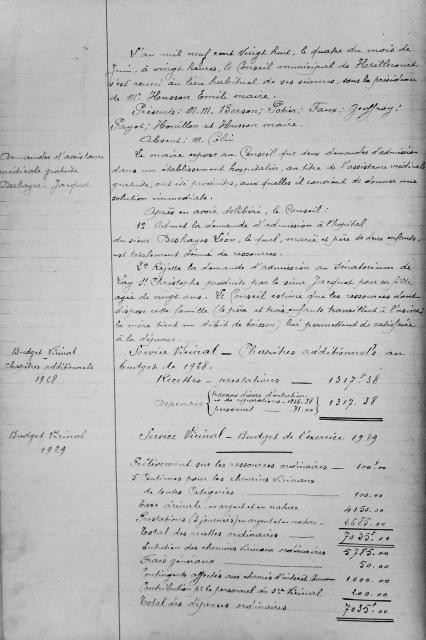 L'an mil neuf cent vingt huit, le quatre du mois de
Juin, à vingt heures, le Conseil municipal de Heillecourt
s'est réuni au lieu habituel de ses séances, sous la présidence
de Mr Husson Emile maire.
Présents: M.M. Barson; Potier; Faux; Geoffroy;
Payot; Houillon et Husson maire.
Absent: M. Colin
Demandes d'assistance
médicale gratuite
Deshayes - Jacquot
Le maire expose au Conseil que deux demandes d'admission
dans un établissement hospitalier, au titre de l'assistance médicale
gratuite, ont été produites, aux quelles il convient de donner une
solution immédiate.
Après en avoir délibéré, le Conseil:
1º Admet la demande d'admission à l'hôpital
du sieur Deshayes Léon, lequel, marié et père de deux enfants,
est totalement dénué de ressources.
2º Rejette la demande d'admission au Sanatorium de
Lay St Christophe produite par le sieur Jacquot pour sa fille
agée de vingt ans. Le Conseil estime que les ressources dont
dispose cette famille (le père et trois enfants travaillent à l'usine,
la mère tient un débit de boisson) lui permettent de satisfaire
à la dépense.
Budget Vicinal
chapitres additionnels
1928
Service Vicinal - Chapitres additionnels au
budget de 1928.
Recettes - prestations - 1317f38
Dépenses { travaux divers d'entretien
et de réparations - 1246.38
personnel 71.00 } 1317.38
Budget Vicinal
1929
Service Vicinal - Budget de l'exercice 1929
Prélèvement sur les ressources ordinaires - 100f00
5 Centimes pour les chemins vicinaux
de toutes catégories 100.00
Taxe vicinale en argent et en nature 4150.00
Prestations (3 journées) en argent et nature - 2685.00
Total des recettes ordinaires 7035f.00
Entretien des chemins vicinaux ordinaires 5785.00
Frais généraux 50.00
Contingents affectés aux chemins d'intérêt commun 1000.00
Contribution pr le personnel du Sce Vicinal 200.00
Total des dépenses ordinaires 7035f.00